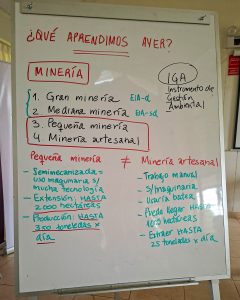 ¿QUÉ APRENDIMOS AYER?
MINERÍA
IGA
Instrumento de
Gestión
Ambiental
1. Gran minería EIA-d
2. Mediana minería EIA-sd
3. Pequeña minería
4. Minería artesanal
Pequeña minería ≠ Minería artesanal
- Semimecanizada =
uso maquinaria s/
mucha tecnología
- Extensión: HASTA
2000 hectáreas
- Producción: HASTA
350 toneladas x
día
- Trabajo manual
- S/maquinaria
- Usaría batea
- Puede llegar HASTA
1000 hectáreas
- Extraer HASTA
25 toneladas x día